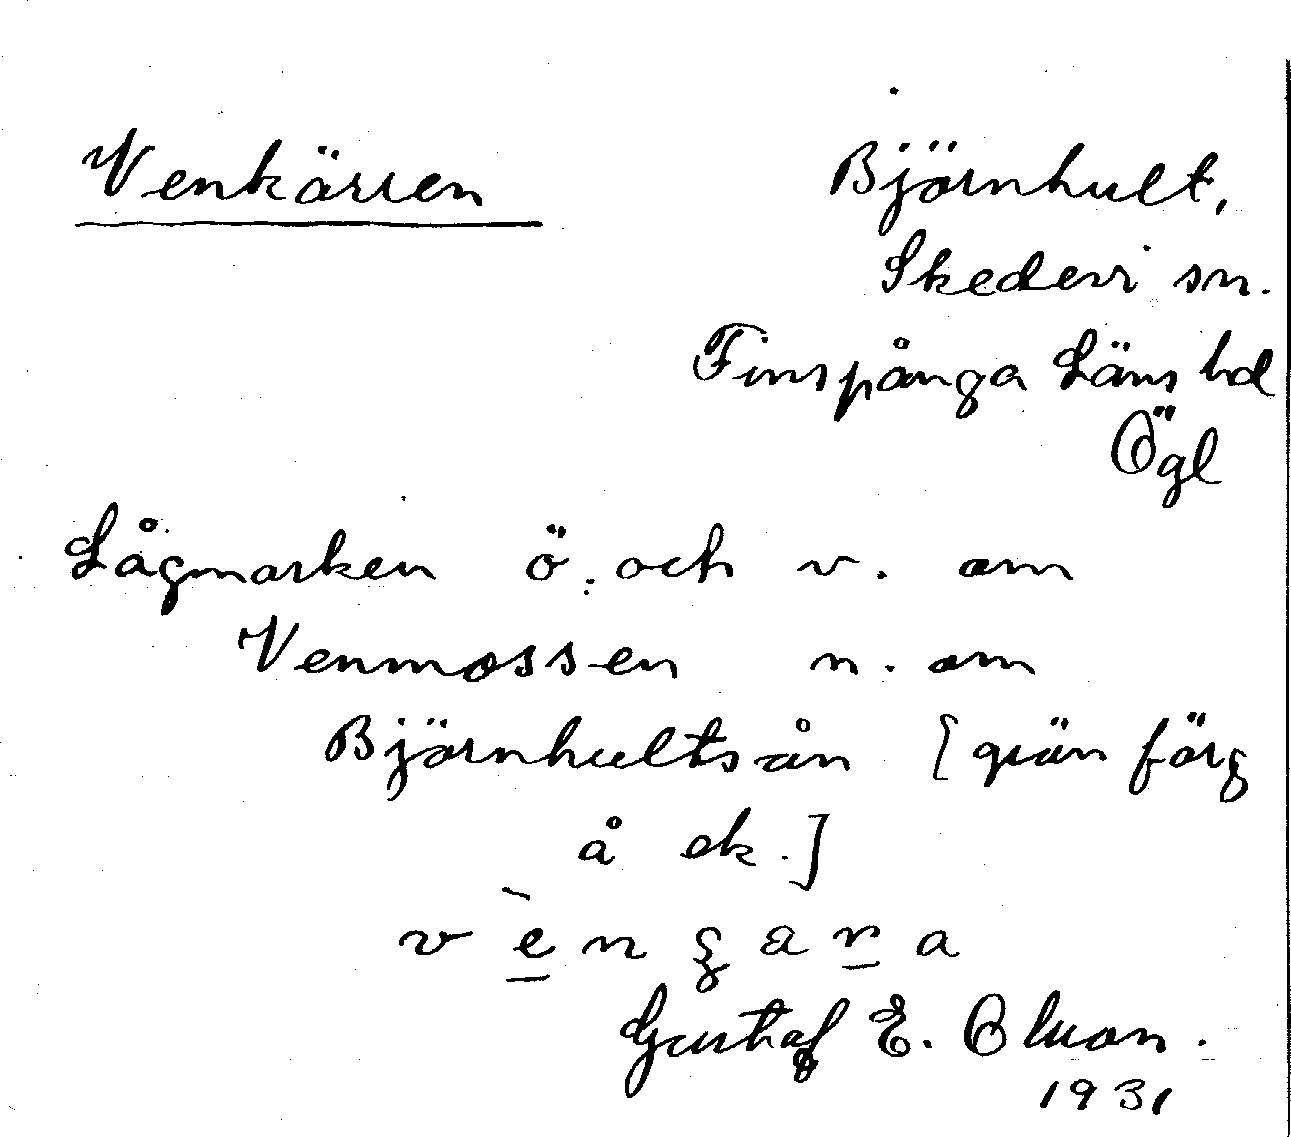 Venkärren
Björnhult,
Skedevi sn.
Finspånga Läns hd
Ögl
Lågmarken ö. och v. om
Venmossen n. om
Björnhultsån [grön färg
å ek.]
vèngara
Gustaf E. Olsson.
1931